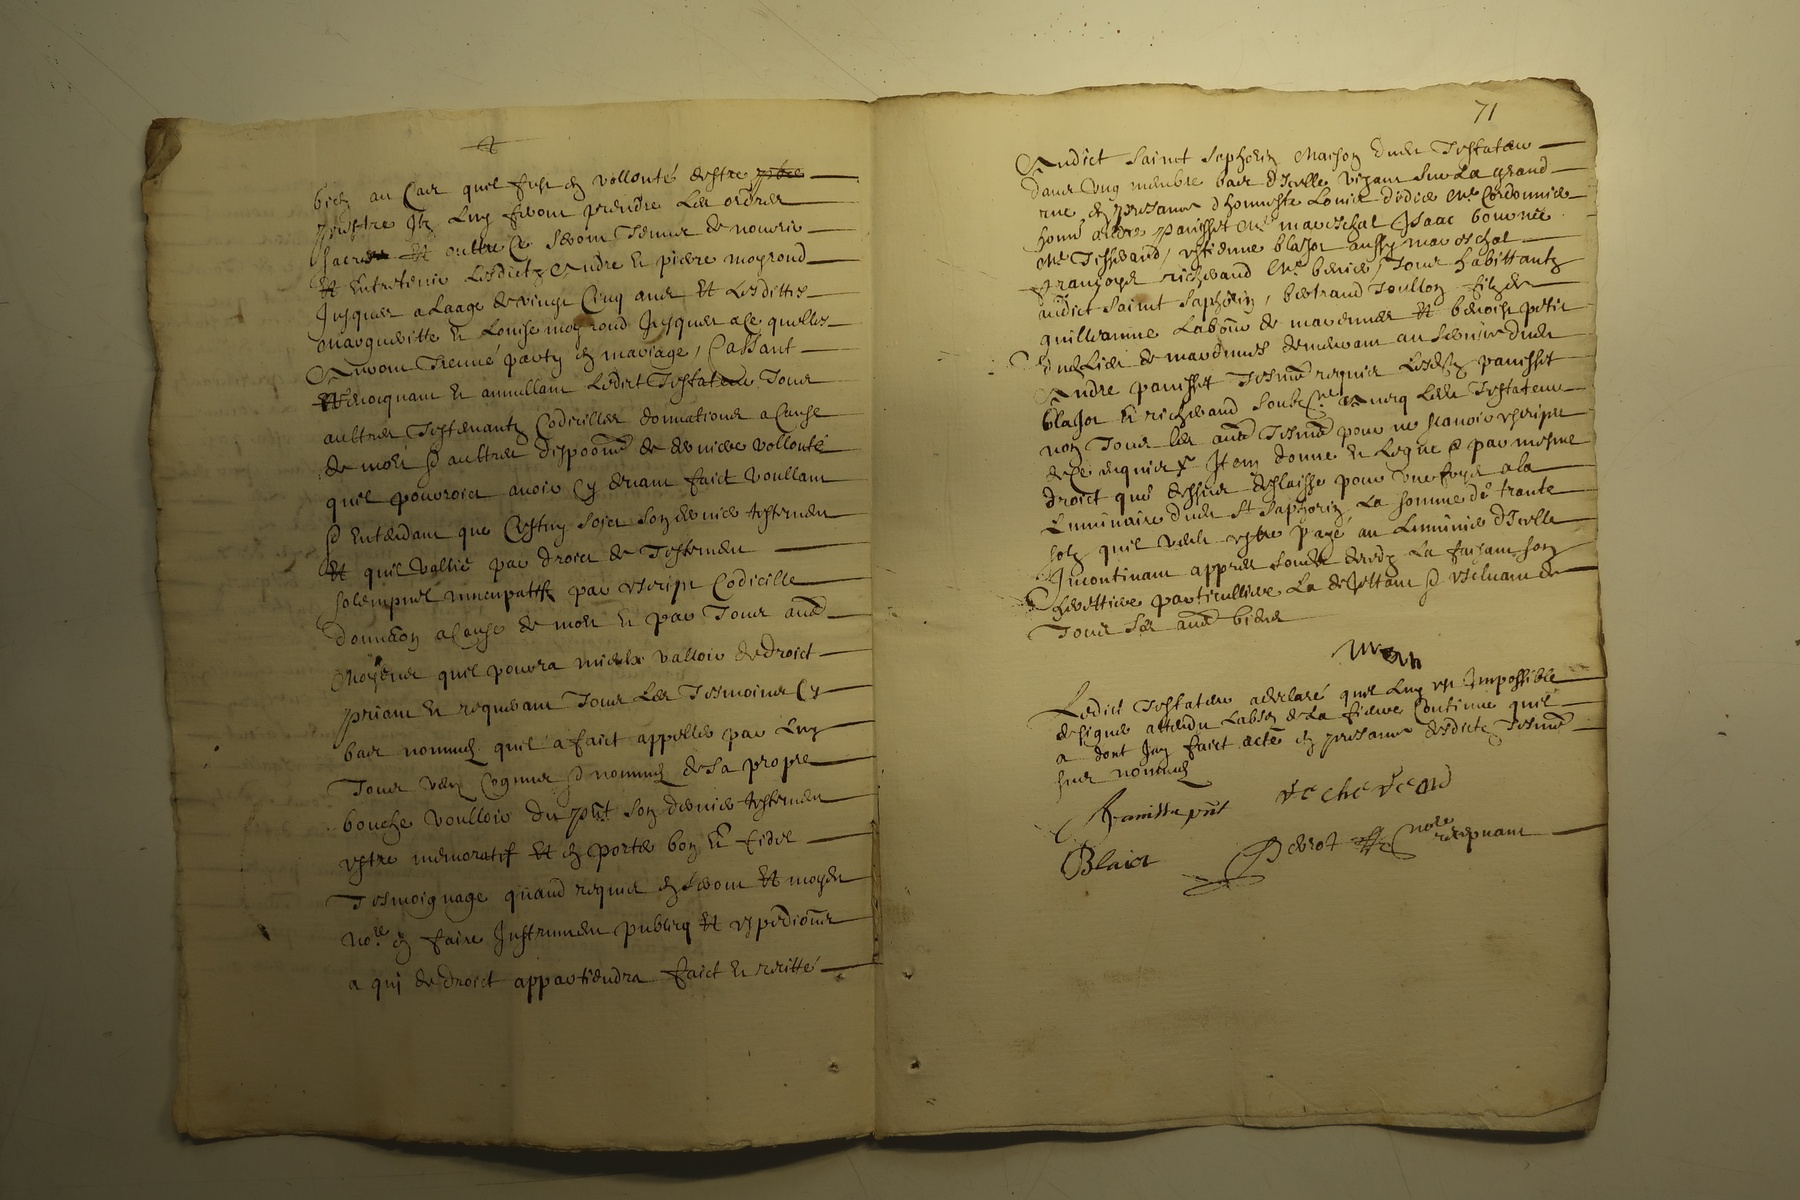 bien au Cas quil fust en vollonté destre
prestre Ilz Luy feront prendre Les ordres
sacres Et oultre Ce seront Tenus de nourir
Et Entretenir Lesdictz Andre et pierre moyroud
Jusques a Laage de vingt Cinq ans Et Lesdittes
margueritte et Louise moyroud Jusques a Ce quelles
Auront Treuué party en mariage, Cassant
Et revocquant et annullant Ledict Testateur Tous
aultres Testemantz Codicilles donnations a Cause
de mort & aultres dispoōns de derniere vollonté
quil pourroict auoir Cy deuant faict voullant
& Entendant que Cestuy soict son dernier testement
Et quil vallie par droict de Testement
solempnel nuncupatif par escript Codicille
donnaōn a Cause de mort et par Tous aues
moyens quil pourra mieulx valloir de droict
priant et requerant Tous Les Tesmoings Cy
bas nommes quil a faict appeller par Luy
Tous bien Cogneus & nommes de sa propre
bouche voulloir du pnt son dernier testement
estre memoratif Et en porter bon et fidel
Tesmoignage quand requis en seront Et moy
nore en faire Instrument publicq Et expedions
a qui de droict appartiendra faict et recitté
71
Audict Saint Saphorin Maison dudit Testateur
dans ung membre bas dIcelle visant sur La grand
rue en presance dhonneste Louis Me Cordonnier
honn andre panisset Me mareschal Isaac
Me Tisserand, estienne blazot aussy mareschal
françoys richerand Me, Tous habittantz
audict Saint Saphorin, bertrand Toullon filz de
guilleaume Labour de marennes Et benoist petit
dudLieu de marennes demeurant au seruice dudit
Andre panisset Tesmos requis Lesdz panisset
blazot et richerand soubzne auecq Ledit Testateur
non Tous les aues Tesmos pour ne scauoir escripre
de Ce requis Item donne et Legue & par mesme
droict que dessus deslaisse pour une foys a la
Luminaire dudit St Saphorin La somme de trante
solz quil veult estre payé au Luminier dIcelle
Incontinant appres son decedz La faisant son
herettiere particulliere La dejettant & excluant de
Tous ses aues biens
Ledict Testateur a declaré quil Luy est Impossible
de signer attendu Labces de La fieure Continue quil
a dont Jay faict acte en presance desdictz Tesmos
sus nommes
Panisset pnt
richerand
Blazot
Perrot nore recepuant